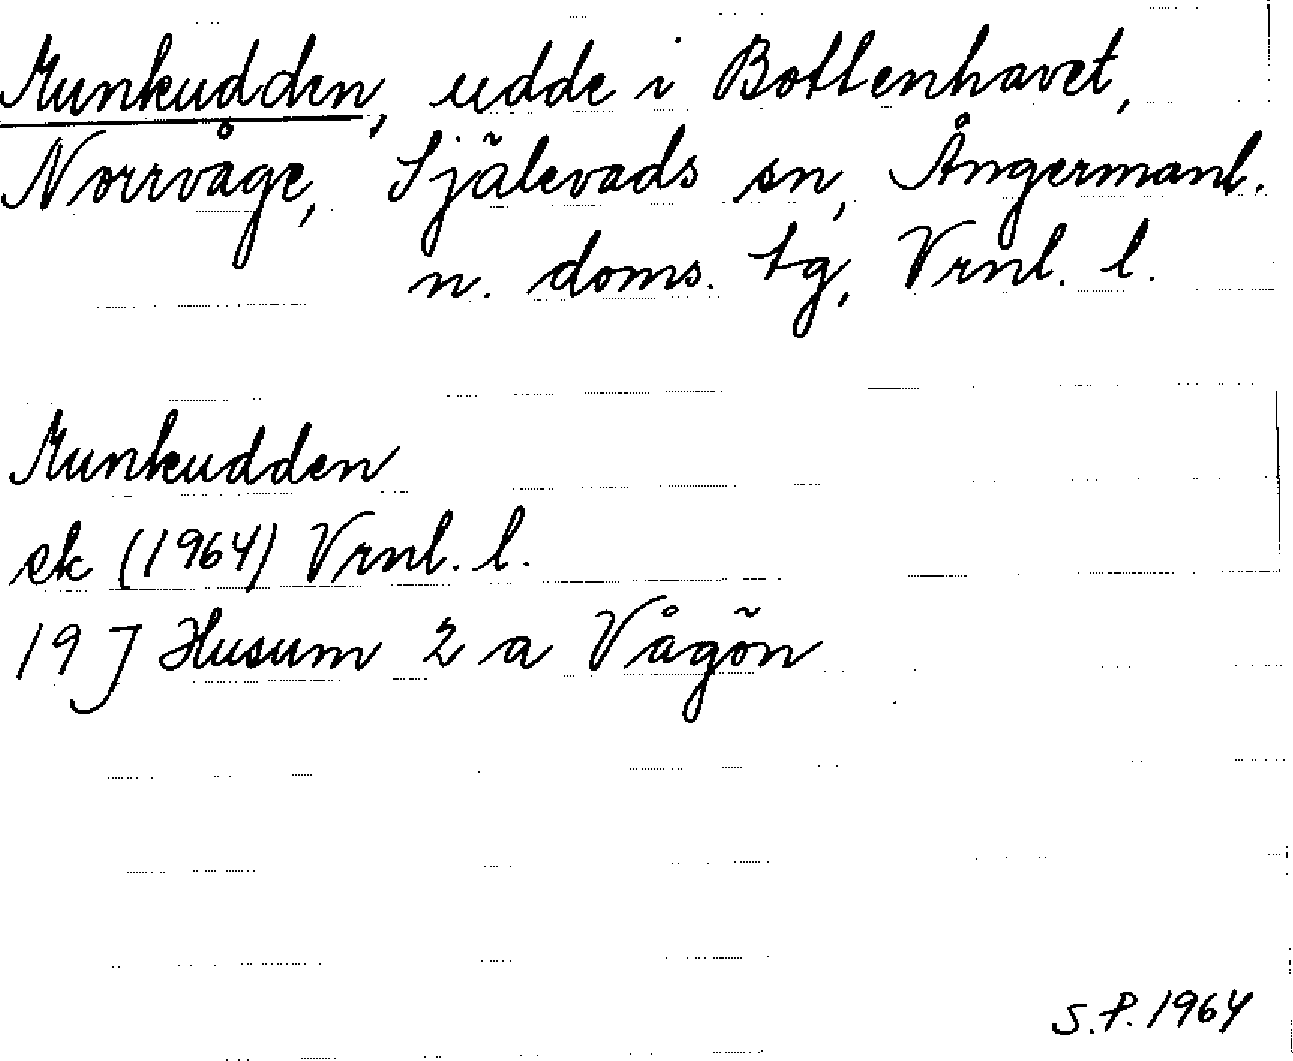 Munkudden, udde i Bottenhavet,
Norrvåge, Själevads sn, Ångermanl.
n. doms. tg, Vrnl. l.
Munkudden
ek (1964) Vrnl. l.
19 J Husum 2 a Vågön
S.P. 1964